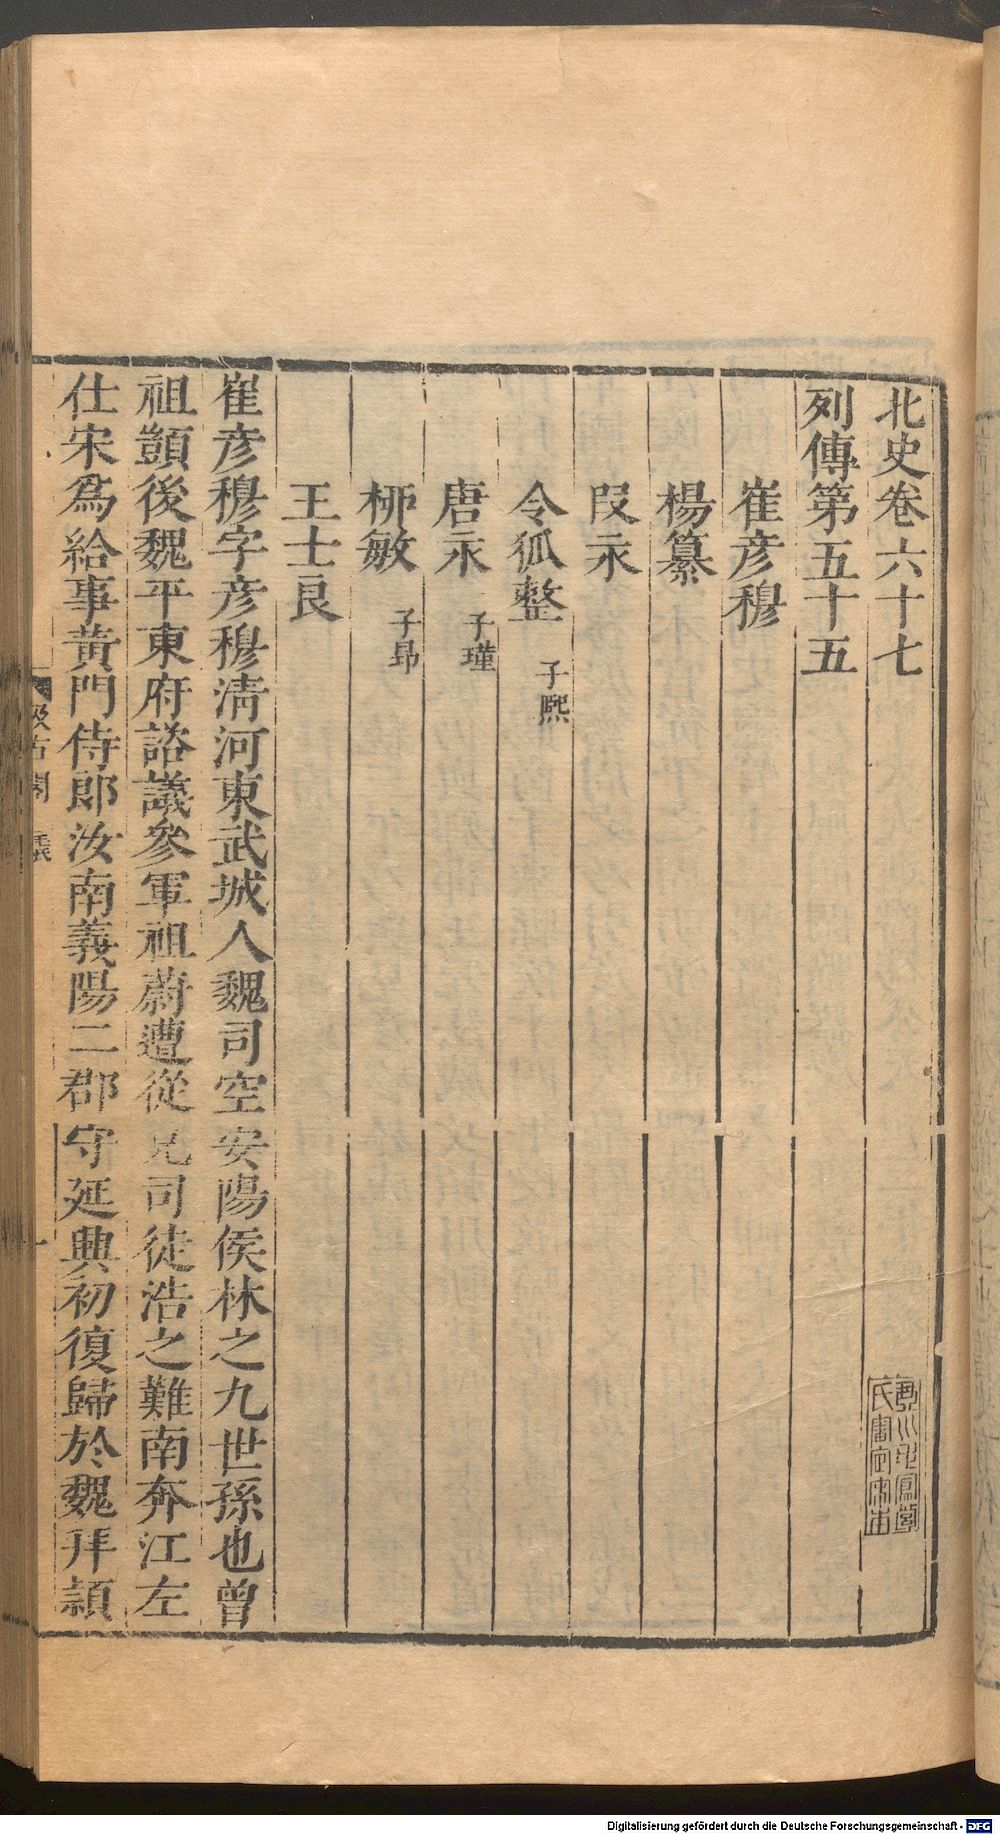 北史卷六十七
列傳第五十五
崔彦穆
楊纂
段永
令狐整 子熙
唐永 子瑾
柳敏 子昂
王士良
崔彦穆字彦穆淸河東武城人魏司空安陽侯林之九世孫也曾
祖顗後魏平東府諮議參軍祖蔚遭從兄司徒浩之難南奔江左
仕宋爲給事黃門侍郎汝南義陽二郡守延興初復歸於魏拜潁
汲古閣 毛氏
一
Digitalisierung gefördert durch die Deutsche Forschungsgemeinschaft - DFG